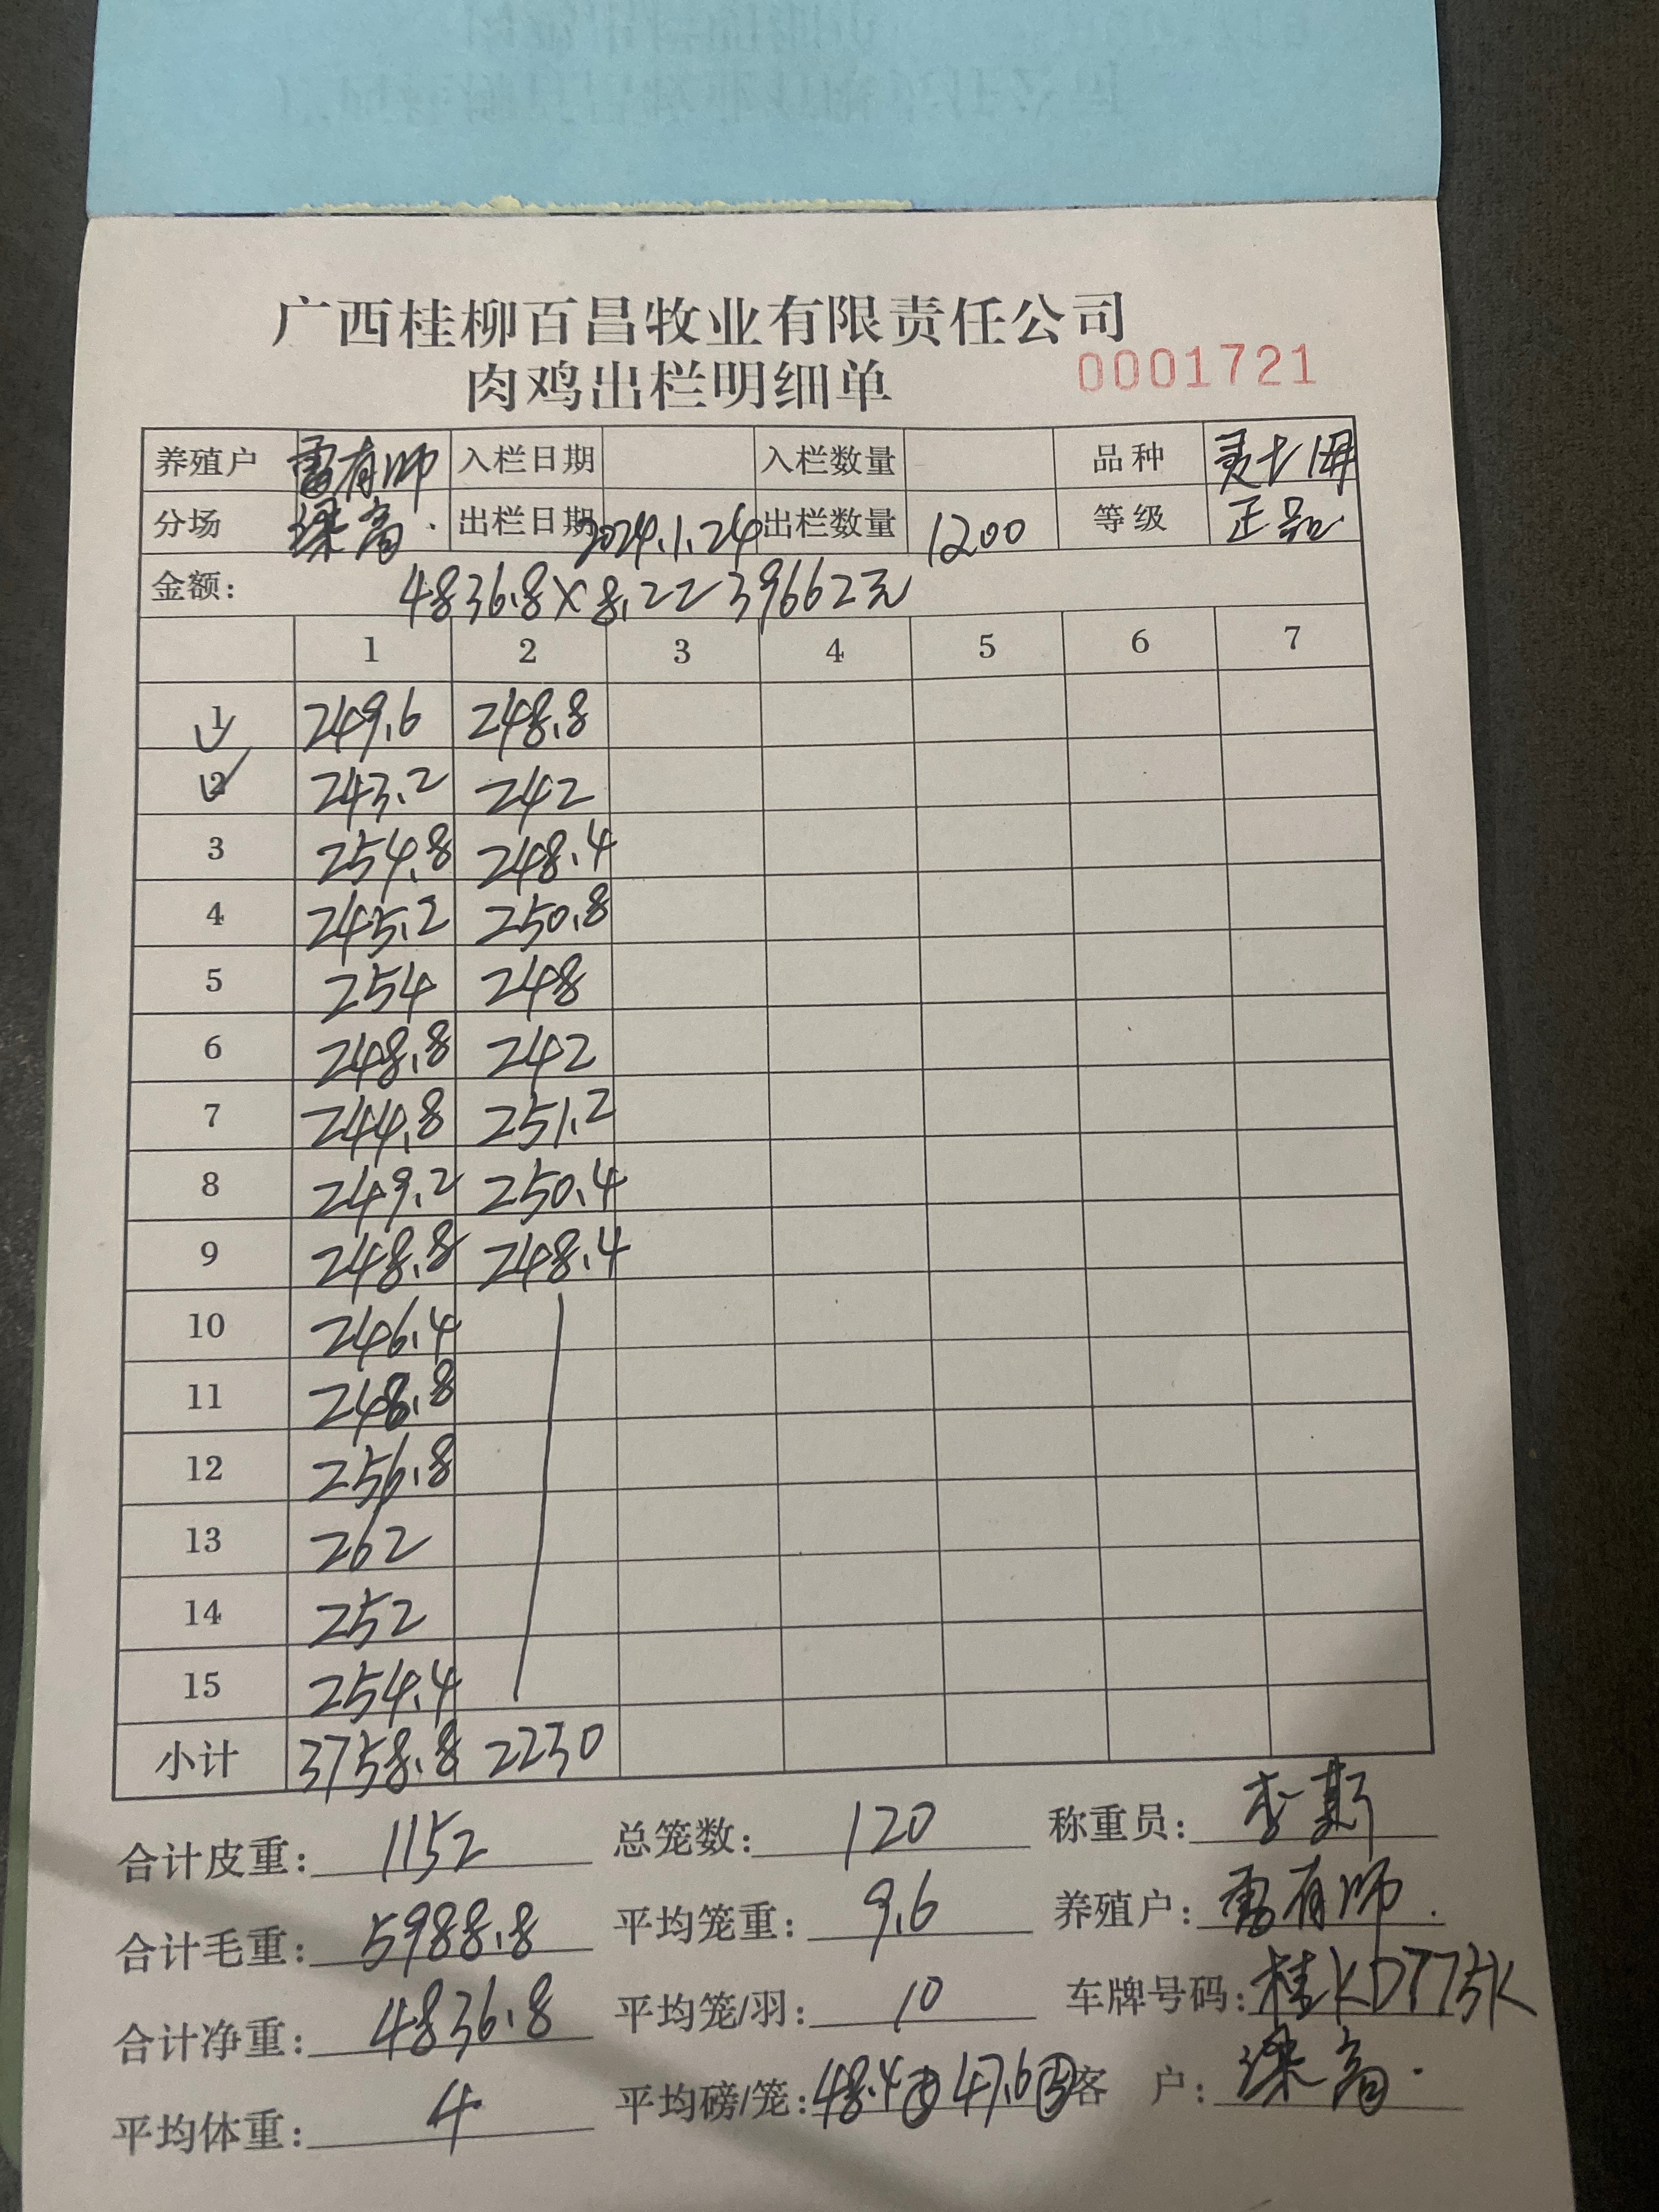 广西桂柳百昌牧业有限责任公司
肉鸡出栏明细单 0001721
养殖户 雷有师 入栏日期 入栏数量 品种 灵土
分场 梁高 出栏日期 2024.1.24 出栏数量 1200 等级 正品
金额: 4836.8×8.2=39662元
1 2 3 4 5 6 7
1 249.6 248.8
2 243.2 242
3 254.8 248.4
4 245.2 250.8
5 254 248
6 248.8 242
7 244.8 251.2
8 249.2 250.4
9 248.8 248.4
10 246.4
11 248.8
12 256.8
13 262
14 252
15 254.4
小计 3758.8 2230
合计皮重: 1152 总笼数: 120 称重员: 李斯
合计毛重: 5988.8 平均笼重: 9.6 养殖户: 雷有师
合计净重: 4836.8 平均笼/羽: 10 车牌号码: 桂KD775K
平均体重: 4 平均磅/笼: 48.4 47.6 客户: 梁高